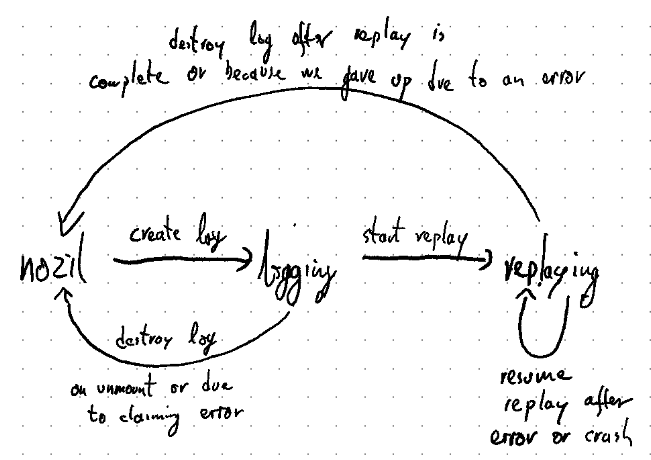 destroy log after replay is
complete or because we gave up due to an error
create log
start replay
nozil
logging
replaying
destroy log
on unmount or due
to claiming error
resume
replay after
error or crash